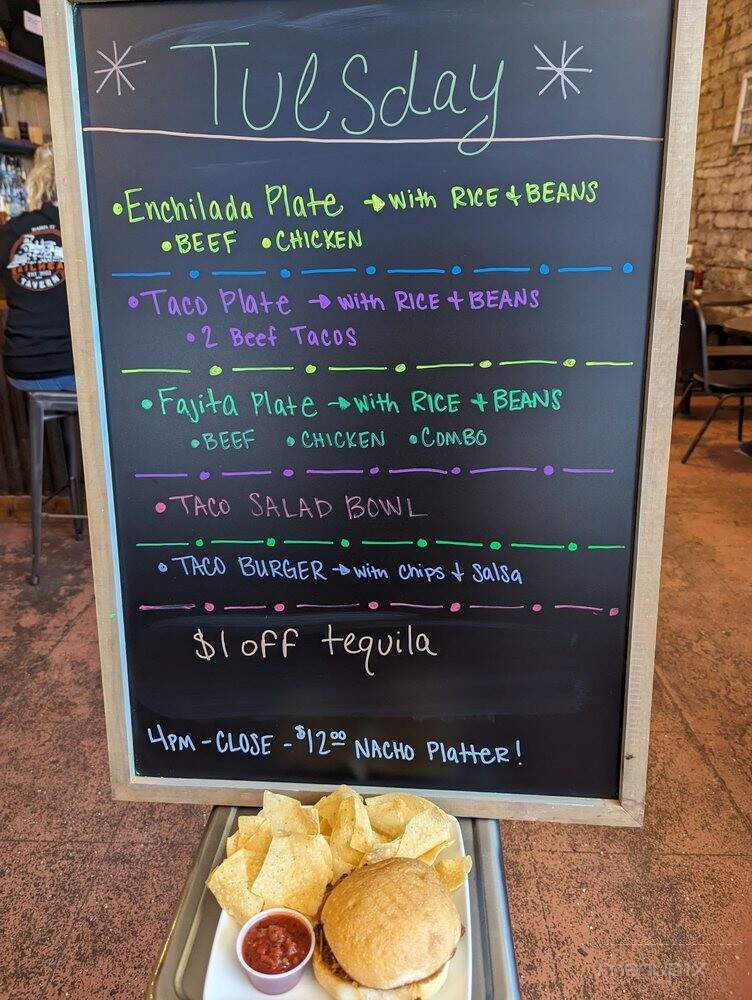 Tuesday
• Enchilada Plate → with RICE + BEANS
• BEEF • CHICKEN
• Taco Plate → with RICE + BEANS
• 2 Beef Tacos
• Fajita Plate → with RICE + BEANS
• BEEF • CHICKEN • COMBO
• TACO SALAD BOWL
• TACO BURGER → with chips + Salsa
$1 off tequila
4PM - CLOSE - $12.00 NACHO Platter!
TAVERN
menupix